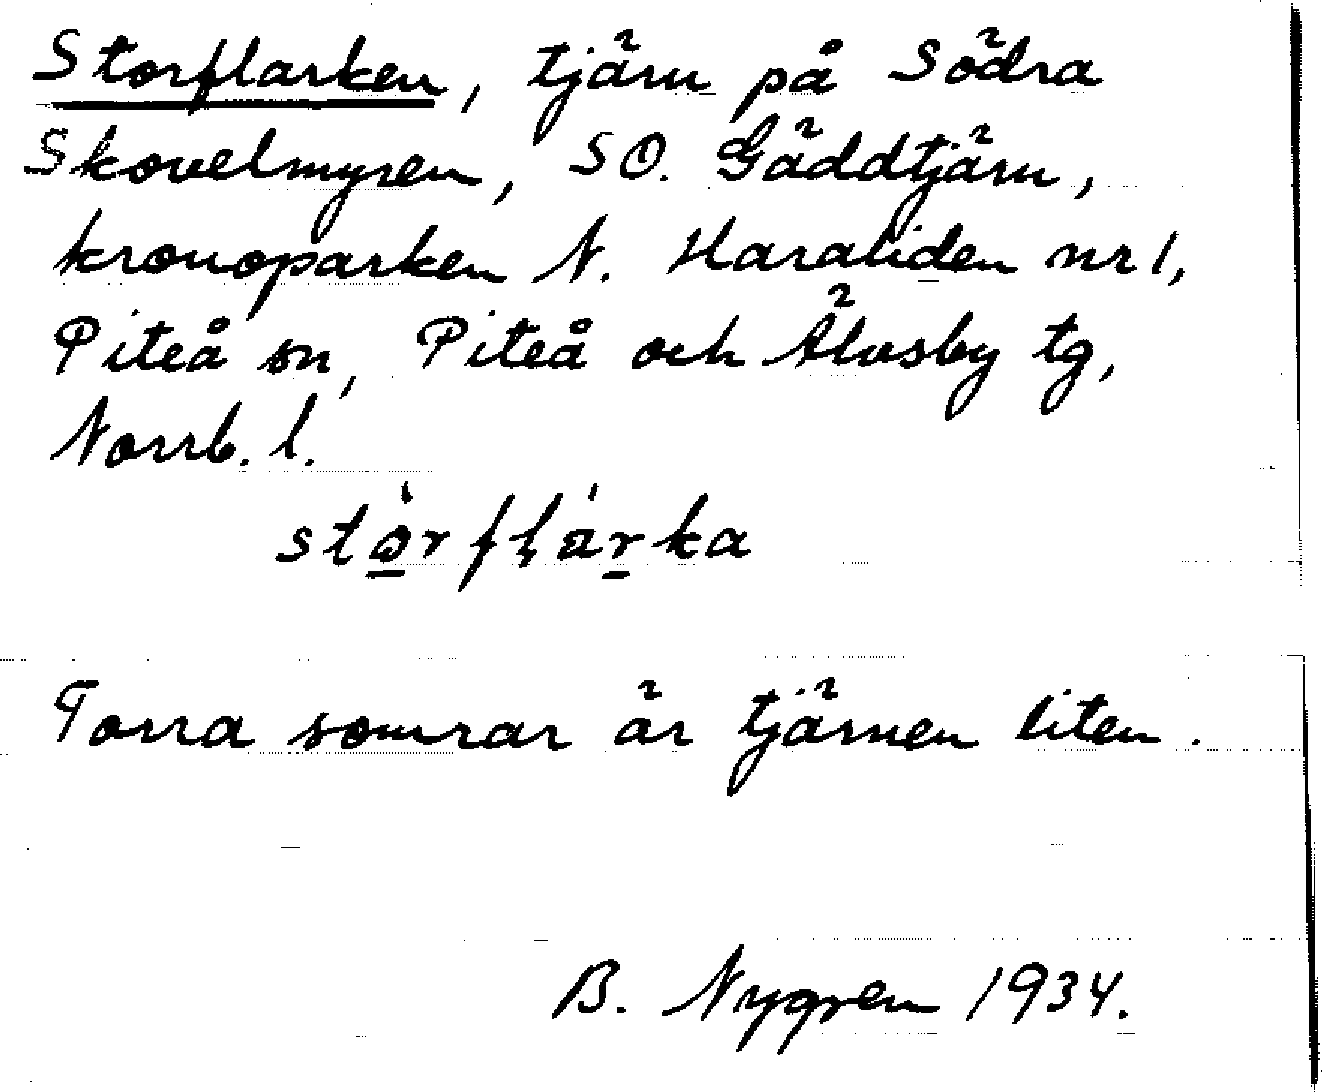 Storflarken, tjärn på Södra
Skovelmyren, SO. Gäddtjärn,
kronoparken N. Haraliden nr 1,
Piteå sn, Piteå och Älvsby tg,
Norrb. l.
stòrflárka
Torra somrar är tjärnen liten.
B. Nygren 1934.